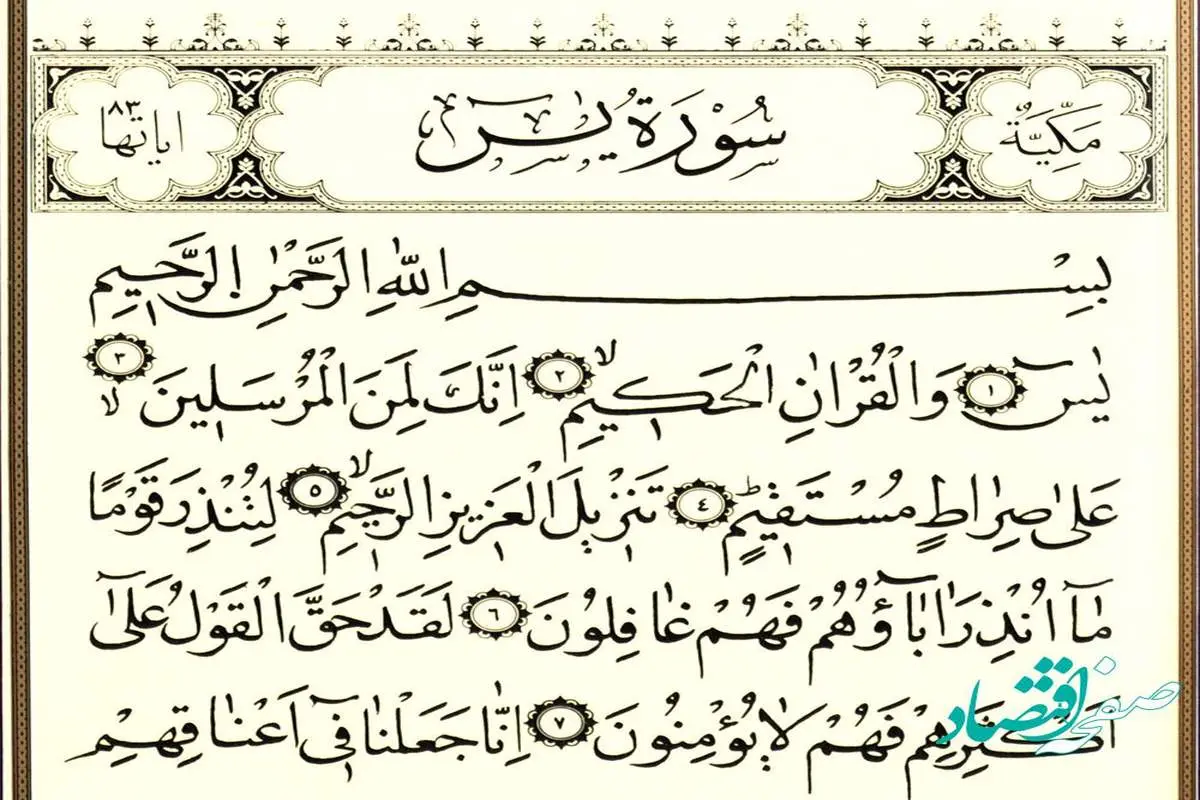 مَكِّيَّةٌ
سُوْرَةُ يٰسٓ
اياتها ٨٣
بِسْمِ اللّٰهِ الرَّحْمٰنِ الرَّحِيمِ
يٰسٓ ١ وَالْقُرْاٰنِ الْحَكِيمِ ۙ ٢ اِنَّكَ لَمِنَ الْمُرْسَلِينَ ۙ ٣
عَلٰى صِرَاطٍ مُسْتَقِيمٍ ؕ ٤ تَنْزِيلَ الْعَزِيزِ الرَّحِيمِ ۙ ٥ لِتُنْذِرَ قَوْمًا
مَٓا اُنْذِرَ اٰبَٓاؤُهُمْ فَهُمْ غَافِلُونَ ٦ لَقَدْ حَقَّ الْقَوْلُ عَلٰٓى
اَكْثَرِهِمْ فَهُمْ لَا يُؤْمِنُونَ ٧ اِنَّا جَعَلْنَا فٓى اَعْنَاقِهِمْ
صفحه اقتصاد